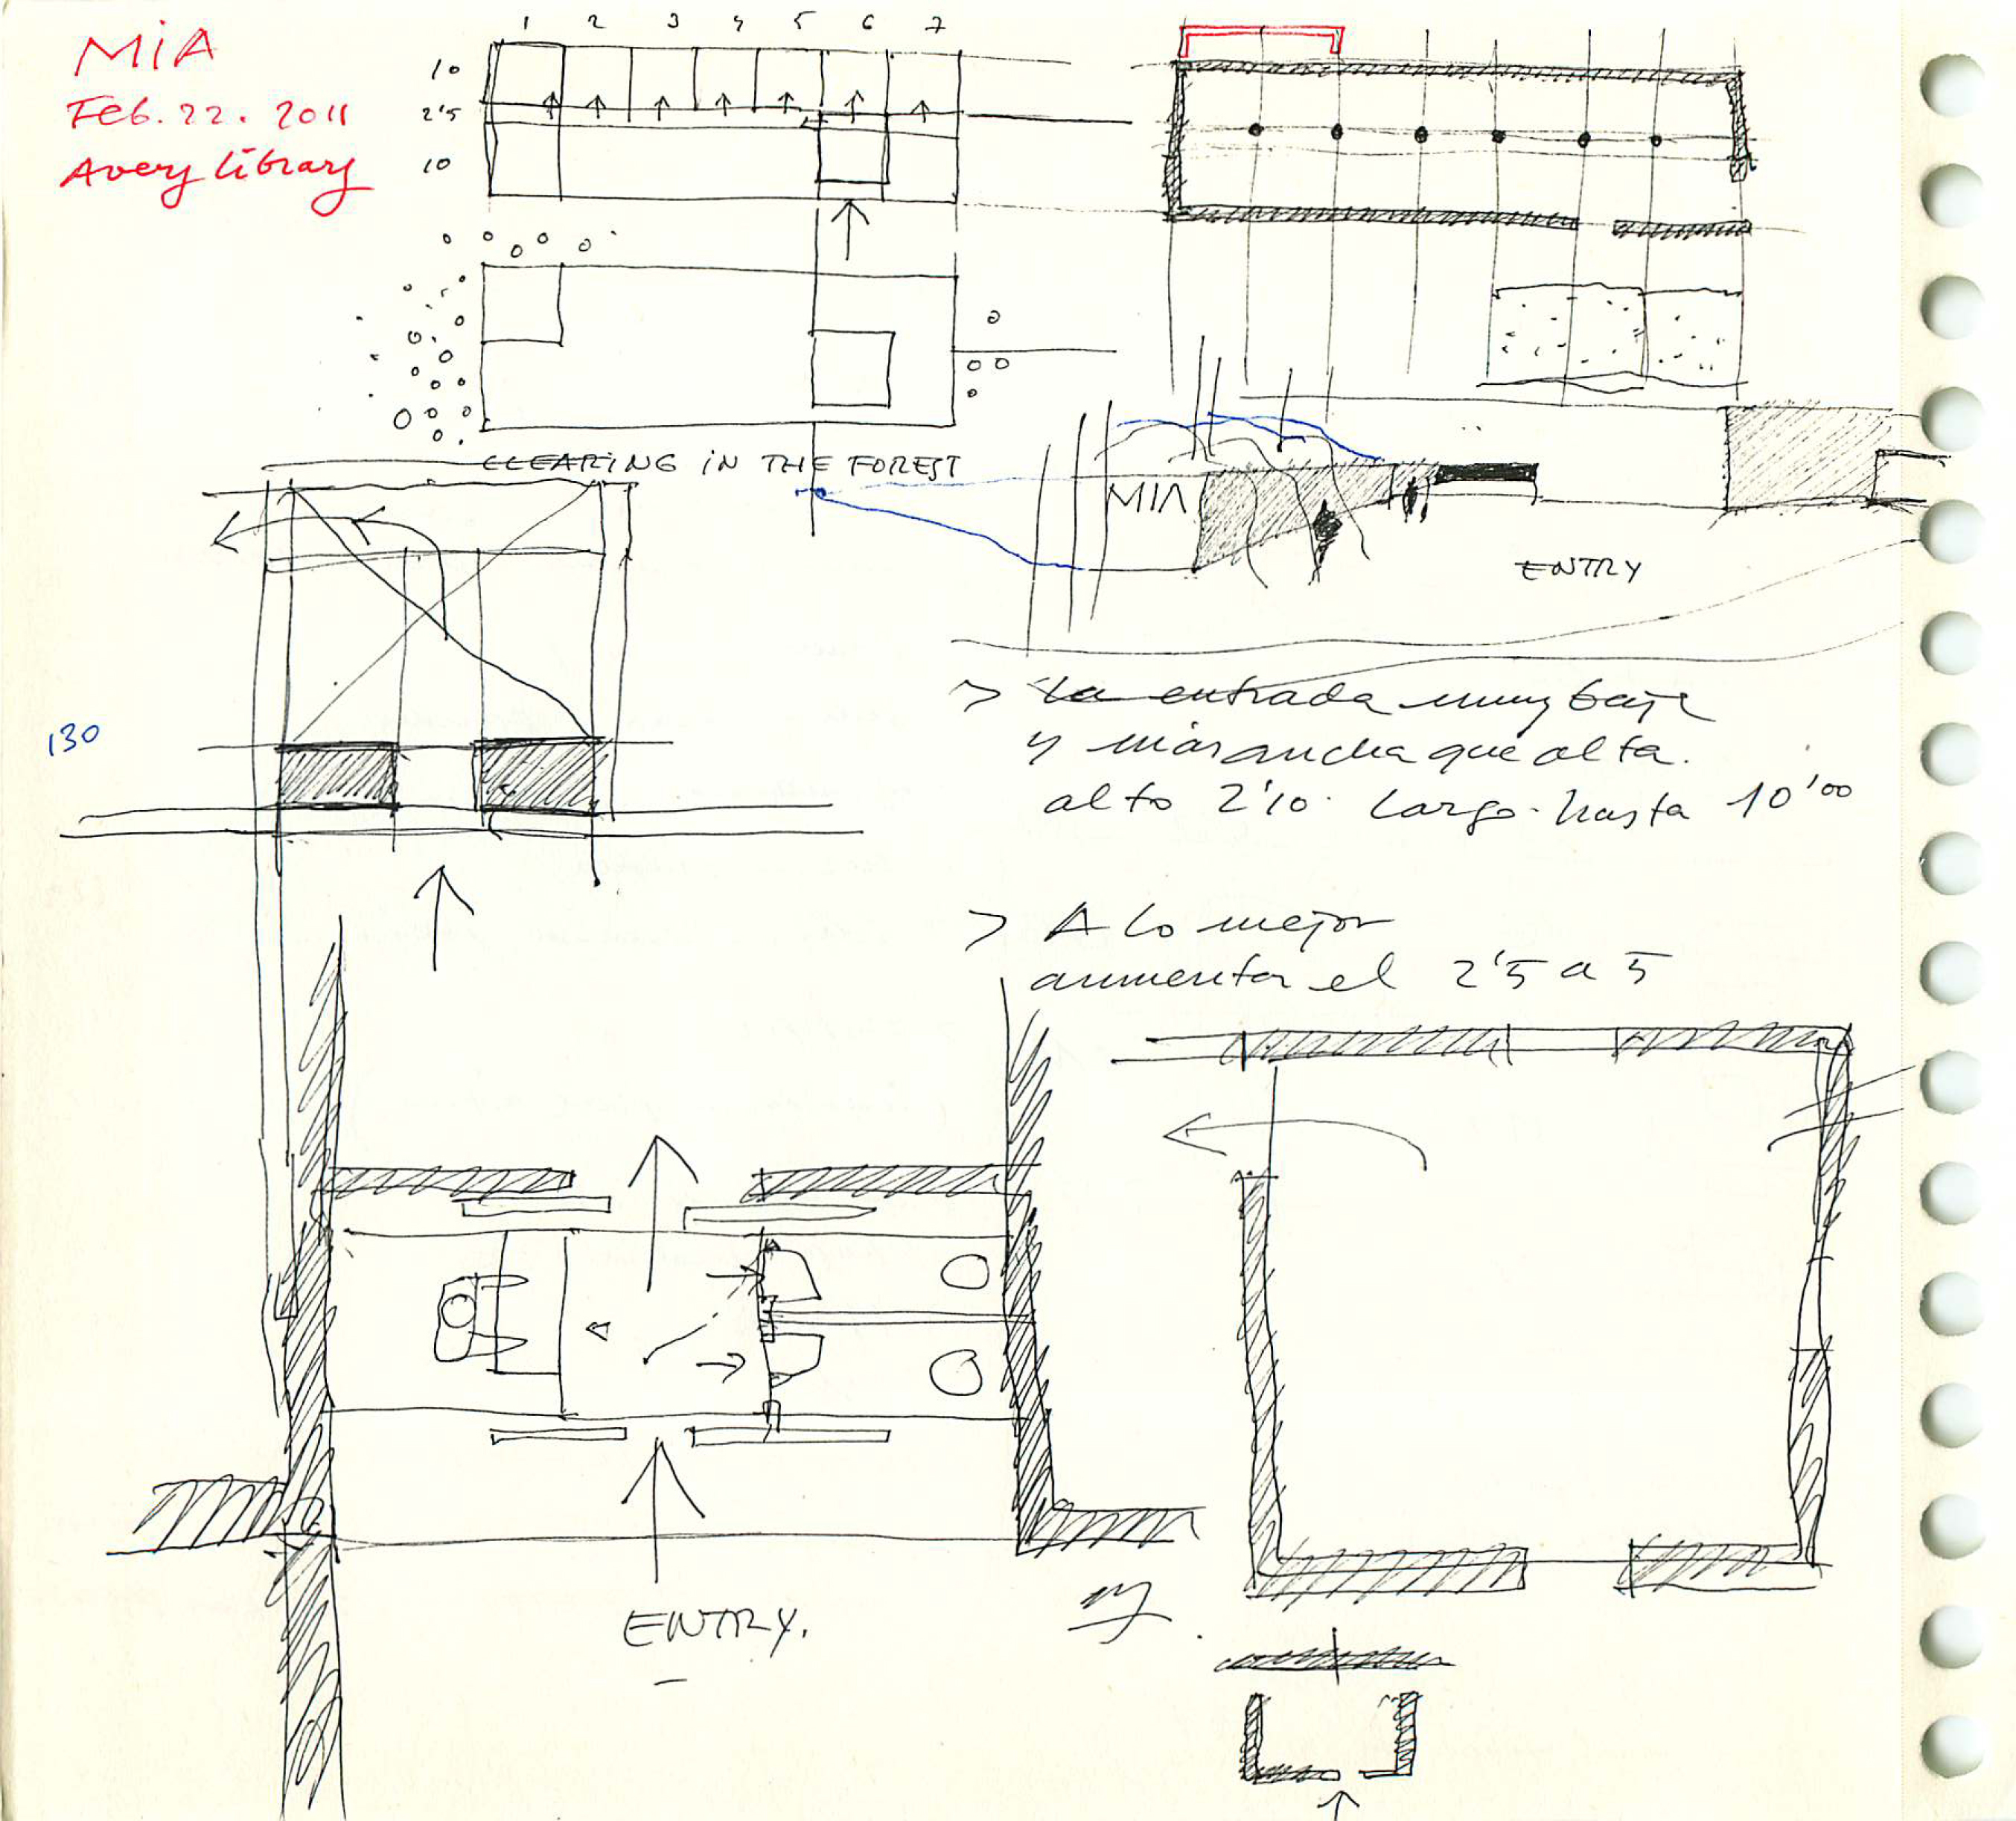 MiA
Feb. 22. 2011
Avery Library
1 2 3 4 5 6 7
10
2'5
10
CLEARING IN THE FOREST
MIA
ENTRY
130
> La entrada muy baja
y más ancha que alta.
alto 2'10. Largo. hasta 10'00
> A lo mejor
aumentar el 2'5 a 5
ENTRY.